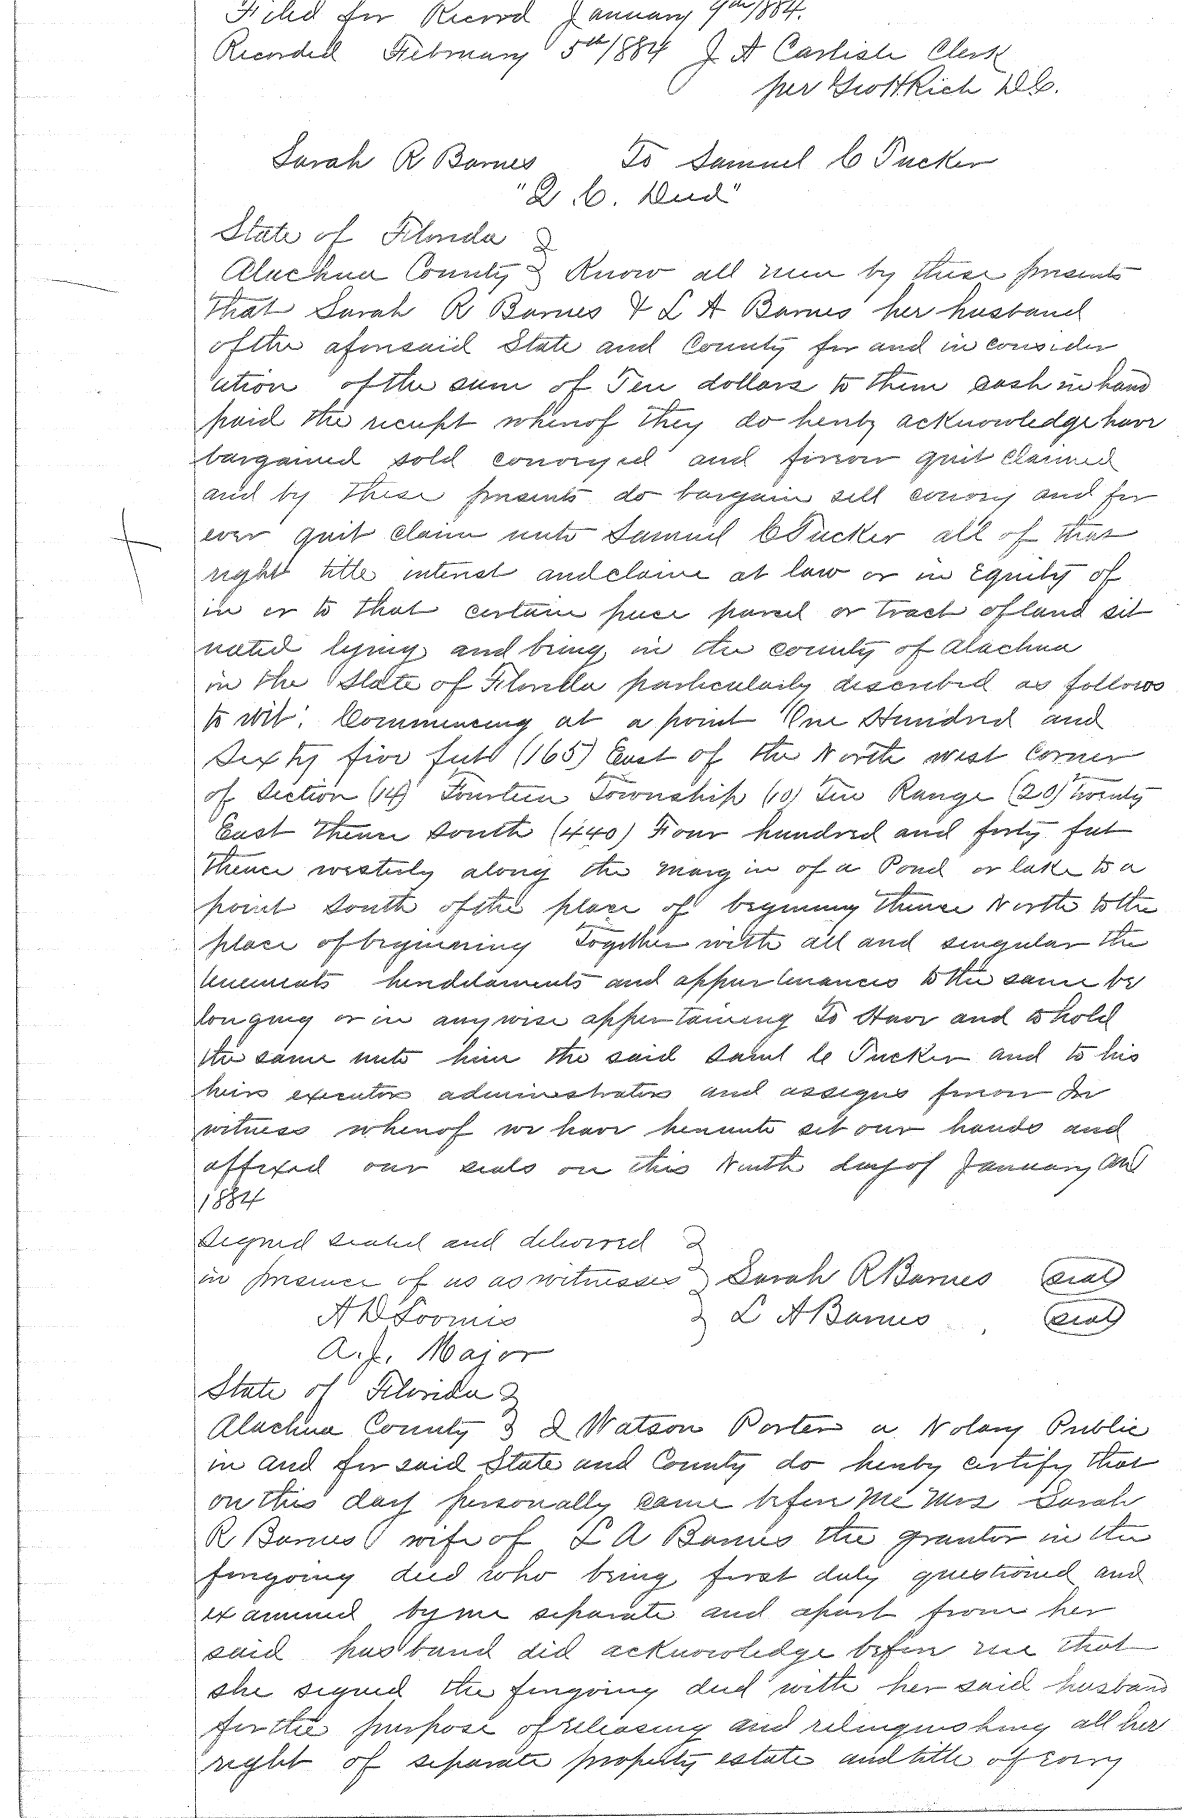 Filed for Record January 9th/884.
Recorded February 5th/884 J A Carlisle Clerk
per Geo H Rich D.C.
Sarah R Barnes To Samuel C Tucker
"Q.C. Deed"
State of Florida }
Alachua County } Know all men by these presents
that Sarah R Barnes & L A Barnes her husband
of the aforesaid State and County for and in consider
ation of the sum of Ten dollars to them cash in hand
paid the receipt whereof they do hereby acknowledge have
bargained sold conveyed and forever quit claimed
and by these presents do bargain sell convey and for
ever quit claim unto Samuel C Tucker all of that
right title interest and claim at law or in Equity of
in or to that certain piece parcel or tract of land sit
uated lying and being in the county of Alachua
in the State of Florida particularly described as follows
to wit: Commencing at a point One Hundred and
Sixty five feet (165) East of the North west corner
of Section (14) Fourteen Township (10) Ten Range (20) Twenty
East thence South (440) Four hundred and forty feet
thence westerly along the margin of a Pond or lake to a
point South of the place of beginning thence North to the
place of beginning Together with all and singular the
tenements hereditaments and appurtenances to the same be
longing or in anywise appertaining To Have and to hold
the same unto him the said Saml C Tucker and to his
heirs executors administrators and assigns forever In
witness whereof we have hereunto set our hands and
affixed our seals on this Ninth day of January AD
1884
Signed sealed and delivered }
in presence of us as witnesses } Sarah R Barnes (seal)
A D Loomis } L A Barnes (seal)
A.J. Major
State of Florida }
Alachua County } I Watson Porter a Notary Public
in and for said State and County do hereby certify that
on this day personally came before me Mrs Sarah
R Barnes wife of L A Barnes the grantor in the
foregoing deed who being first duly questioned and
examined by me separate and apart from her
said husband did acknowledge before me that
she signed the foregoing deed with her said husband
for the purpose of releasing and relinquishing all her
right of separate property estate and title of every